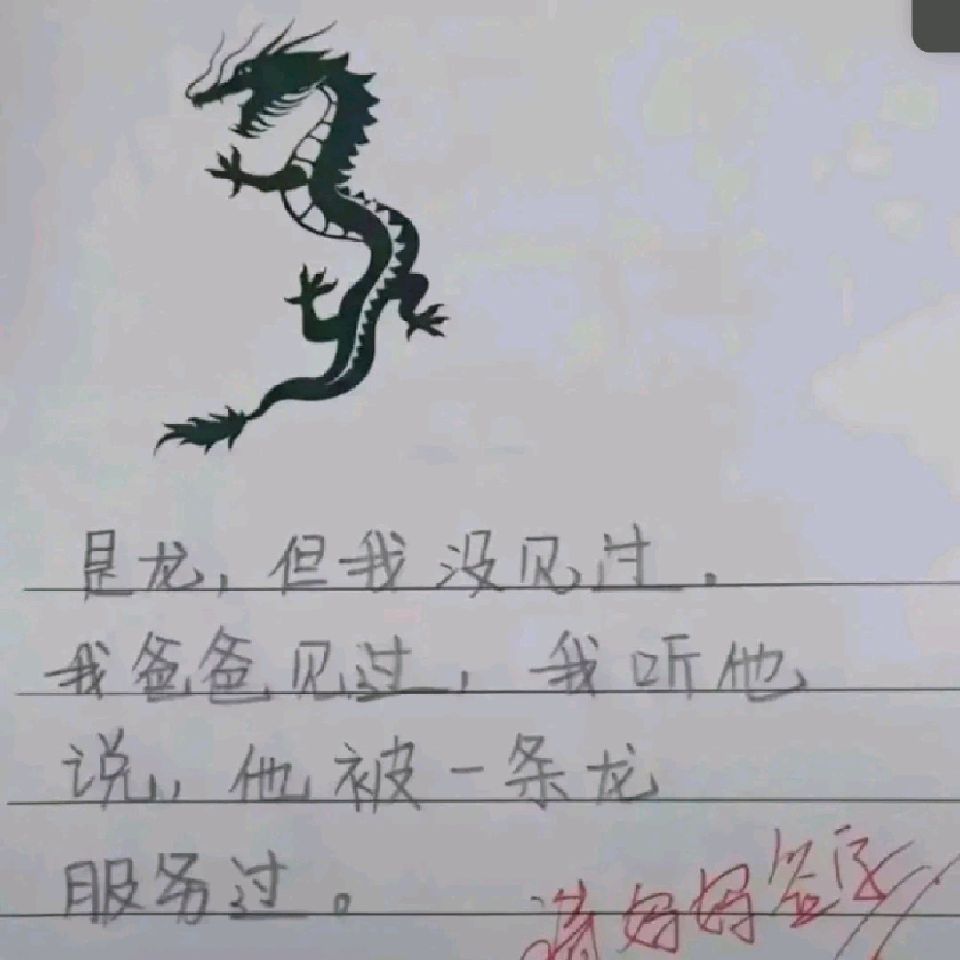 是龙，但我没见过。
我爸爸见过，我听他
说，他被一条龙
服务过。
请妈妈签字